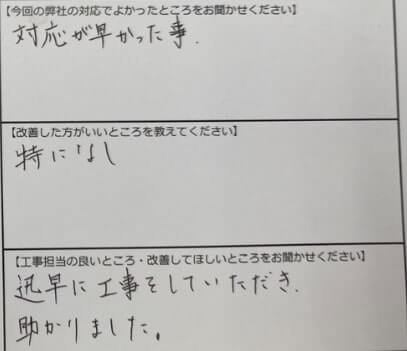 【今回の弊社の対応でよかったところをお聞かせください】
対応が早かった事.
【改善した方がいいところを教えてください】
特になし
【工事担当の良いところ・改善してほしいところをお聞かせください】
迅早に工事をしていただき.
助かりました。